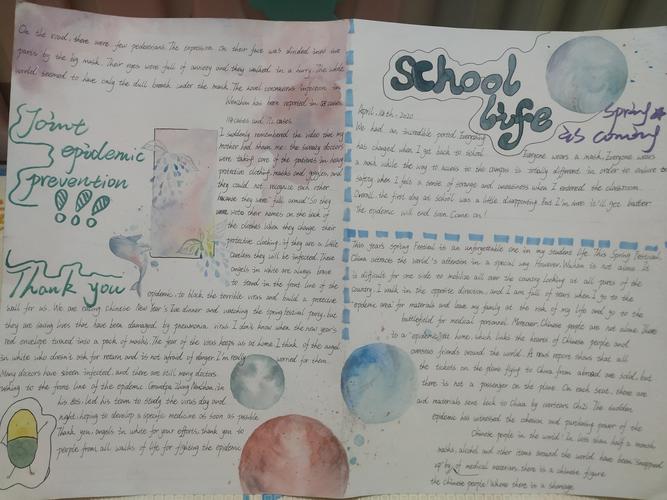 On the road, there were few pedestrians. The expression on their face was divided into two
parts by the big mask. Their eyes were full of anxiety and they walked in a hurry. The whole
world seemed to have only the dull breath under the mask. The novel coronavirus infection in
Wenshan has been reported in
Joint
epidemic
prevention
!!!
I suddenly remembered the video that my
mother had shown me: the sweaty doctors
were taking care of the patients in heavy
protective clothing, masks and goggles, and
they could not recognize each other
because they were full armed! So they
wrote their names on the back of
the clothes when they change their
protective clothing. if they are a little
careless they will be infected. These
angels in white are always brave
to stand in the front line of the
Thank you
epidemic, to block the terrible virus and build a protective
wall for us. We are eating Chinese New Year's Eve dinner and watching the Spring Festival party, but
they are saving lives that have been damaged by pneumonia virus. I don't know when the new year's
red envelope turned into a pack of masks. The fear of the virus keeps us at home. I think of the angel
in white who doesn't ask for return and is not afraid of danger. I'm really worried for them.
Many doctors have been infected, and there are still many doctors
rushing to the front line of the epidemic. Grandpa Zhong Nanshan, in
his 80s, led his team to study the virus day and
night, hoping to develop a specific medicine as soon as possible
Thank you, angels in white for your efforts, thank you to
people from all walks of life for fighting the epidemic
School
life
Spring
is coming
April, 2020
We had an incredible period. Everything
has changed when I get back to school
Everyone wears a mask. Everyone wears
a mask while the way to access to the campus is totally different in order to ensure
safety when I felt a sense of strange and uneasiness when I entered the classroom.
Overall, the first day at school was a little disappointing. But I'm sure it'll get better
The epidemic will end soon. Come on!
This year's Spring Festival is an unforgettable one in my student life. This Spring Festival,
China attracts the world's attention in a special way. However, Wuhan is not alone. It
is difficult for one side to mobilize all over the country. Looking at all parts of the
country, I walk in the opposite direction, and I am full of tears when I go to the
"epidemic area" for materials and leave my family at the risk of my life and go to the
battlefield for medical personnel. Moreover, Chinese people are not alone. There
is a home, which links the hearts of Chinese people and
overseas friends around the world. A news report shows that all
the tickets on the plane flying to China from abroad are sold, but
there is not a passenger on the plane. On each seat, there are
materials sent back to China by overseas The sudden
epidemic has witnessed the cohesion and power of the
Chinese people in the world. In less than half a month
masks, alcohol and other items around the world have been "snapped
up" by of medical materials, there is a Chinese figure
the Chinese people! Where there is a shortage